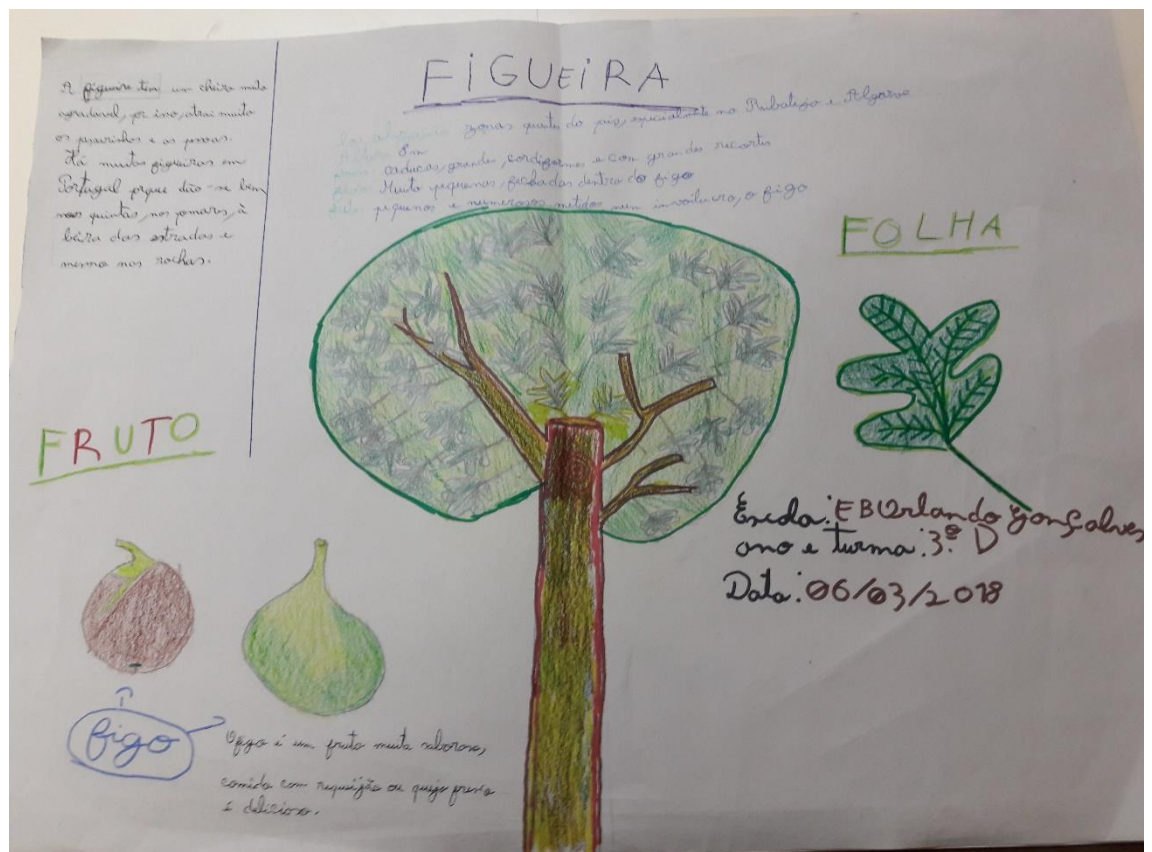 FiGUEiRA
A figueira tem um cheiro muito
agradavel, por isso, atrai muito
os passarinhos e as pessoas.
Há muitas figueiras em
Portugal porque dão-se bem
nas quintas, nos pomares, à
beira das estradas e
mesmo nas rochas.
Em zonas quentes do país, especialmente no Ribatejo e Algarve
caducas, grandes, cordiformes e com grandes recortes
Muito pequenas, fechadas dentro do figo
pequenos e numerosos metidos num invólucro, o figo
FOLHA
FRUTO
Escola: EB Orlando Gonçalves
ano e turma: 3º D
Data: 06/03/2018
figo
O figo é um fruto muito saboroso,
comido com requeijão ou queijo fresco
é delicioso.